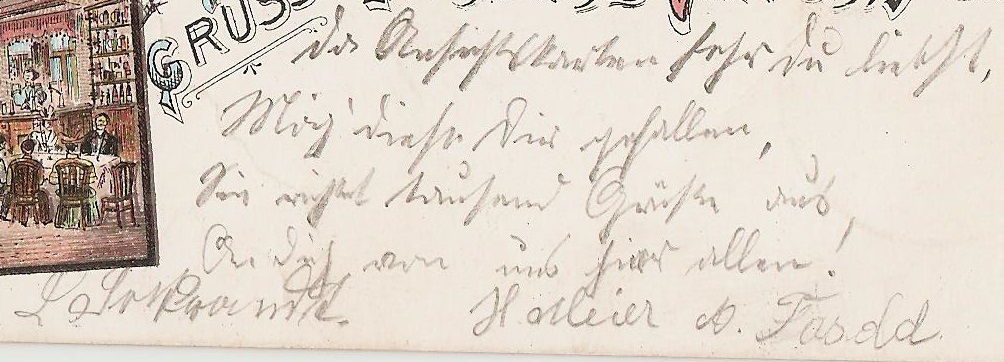 GRUSS
Da Ansichtskarten sehr Du liebst,
Mög' diese Dir gefallen,
Sie richtet tausend Grüße aus,
An Dich von uns hier allen!
H. Meier